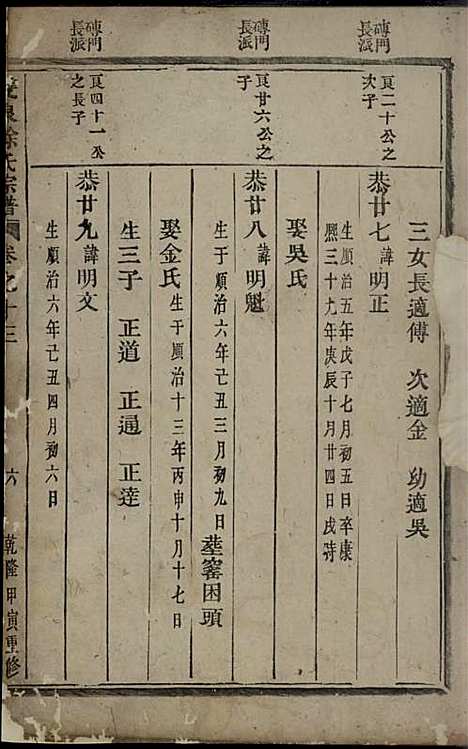 三女長適傅　次適金　幼適吳
磚門長派
良二十公之次子
恭廿七諱明正
生順治五年戊子七月初五日卒康
熙三十九年庚辰十月廿四日戌時
娶吳氏
磚門長派
良廿六公之子
恭廿八諱明魁
生于順治六年己丑三月初九日 塟窰困頭
娶金氏 生于順治十三年丙申十月十七日
生三子　正道　正通　正達
磚門長派
良四十一公之長子
恭廿九諱明文
生順治六年己丑四月初六日
泉徐氏宗譜 卷之十三 六 乾隆甲寅重修